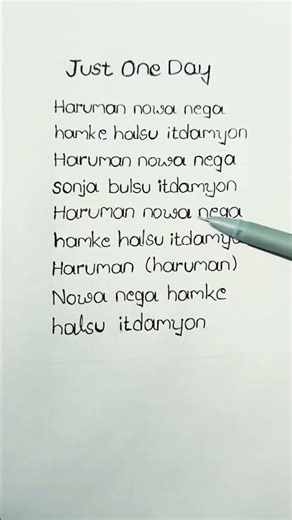 Just One Day
Haruman nowa nega
hamke halsu itdamyon
Haruman nowa nega
sonja bulsu itdamyon
Haruman nowa nega
hamke halsu itdamyo
Haruman (haruman)
Nowa nega hamke
halsu itdamyon